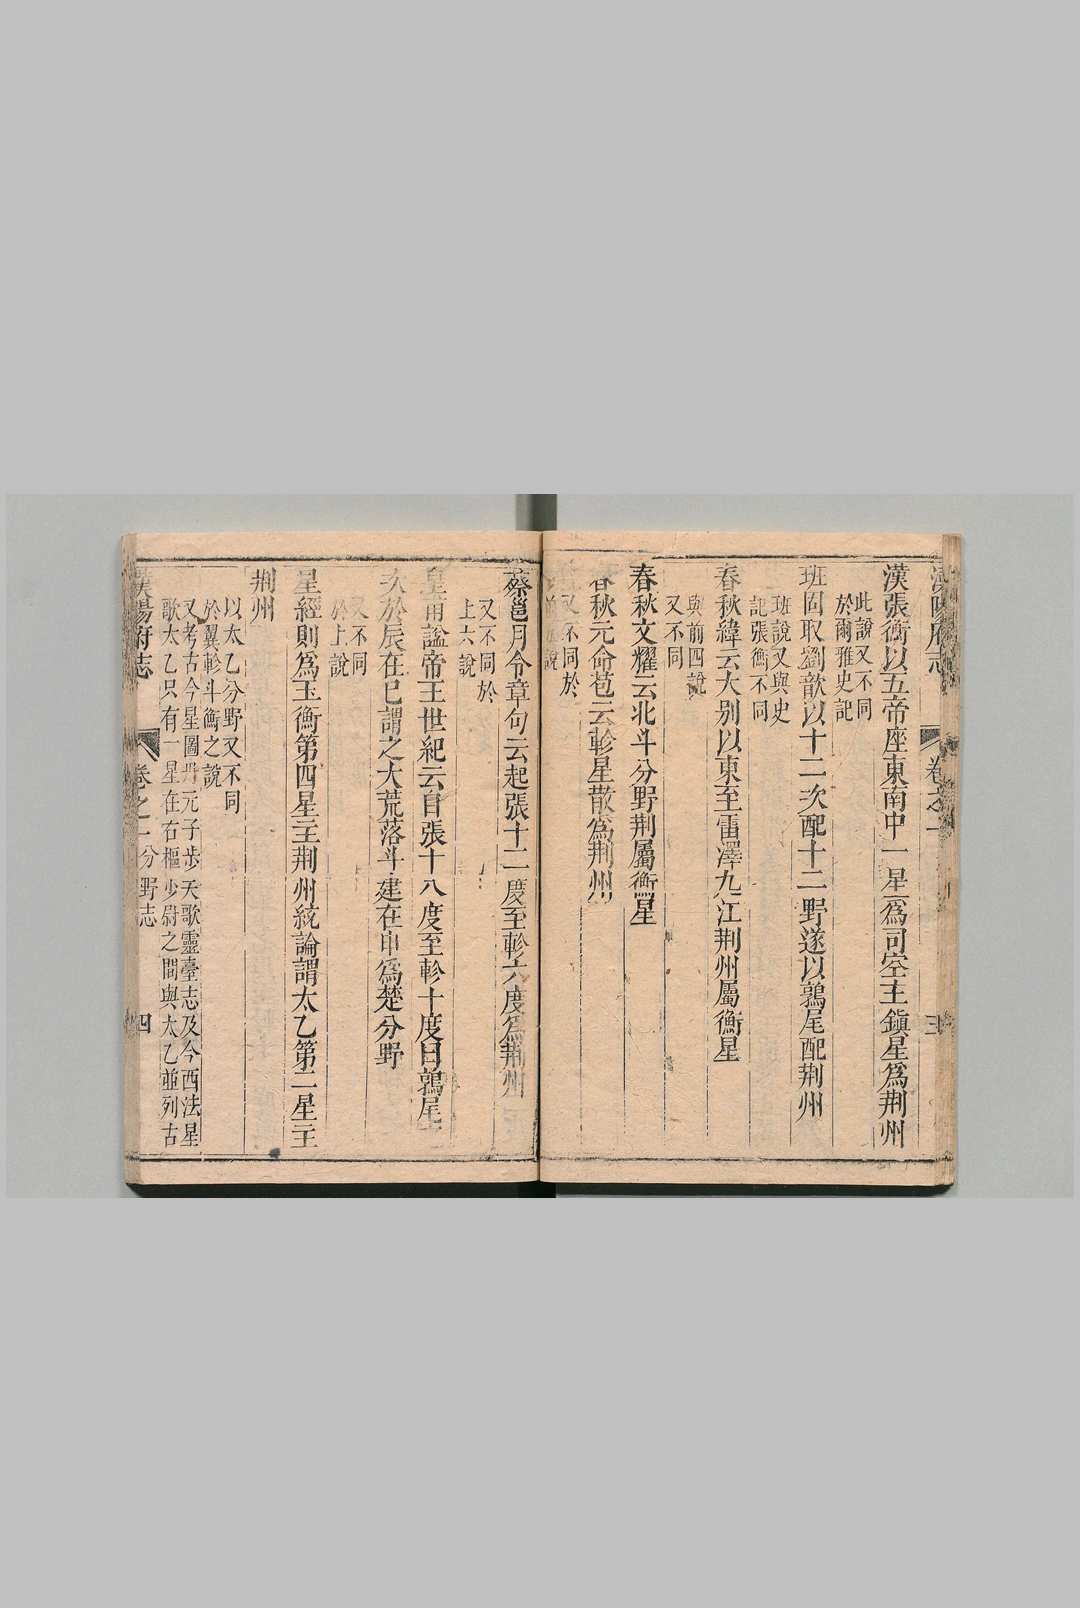 漢陽府志 卷之一
漢張衡以五帝座東南中一星爲司空主鎭星爲荆州
此說又不同
於爾雅史記
班固取劉歆以十二次配十二野遂以鶉尾配荆州
班說又與史
記張衡不同
春秋緯云大别以東至雷澤九江荆州屬衡星
與前四說
又不同
春秋文耀云北斗分野荆屬衡星
春秋元命苞云軫星散爲荆州
又不同於
前五說
蔡邕月令章句云起張十二度至軫六度爲荆州
又不同於
上六說
皇甫謐帝王世紀云自張十八度至軫十度曰鶉尾之
次於辰在巳謂之大荒落斗建在申爲楚分野
又不同
於上說
星經則爲玉衡第四星主荆州統論謂太乙第二星主
荆州
以太乙分野又不同
於翼軫斗衡之說
又考古今星圖丹元子步天歌靈臺志及今西法星
歌太乙只有一星在右樞少尉之間與太乙並列古
漢陽府志 卷之一 分野志 四